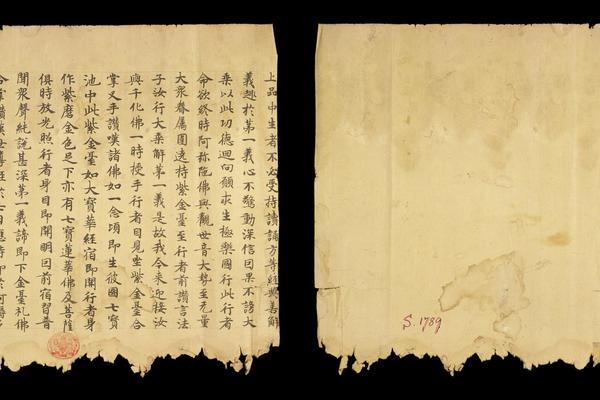 上品中生者不必受持讀誦方等經典善解
義趣於第一義心不驚動深信因果不謗大
乘以此功德迴向願求生極樂國行此行者
命欲終時阿弥陁佛與觀世音大勢至无量
大衆眷屬圍遶持紫金臺至行者前讃言法
子汝行大乘解第一義是故我今來迎接汝
與千化佛一時授手行者自見坐紫金臺合
掌叉手讃嘆諸佛如一念頃即生彼國七寶
池中此紫金臺如大寶華經宿即開行者身
作紫磨金色足下亦有七寶蓮華佛及菩薩
俱時放光照行者身目即開明因前宿習普
聞衆聲純說甚深第一義諦即下金臺礼佛
合掌讃嘆世尊經於七日應時即於
S. 1789